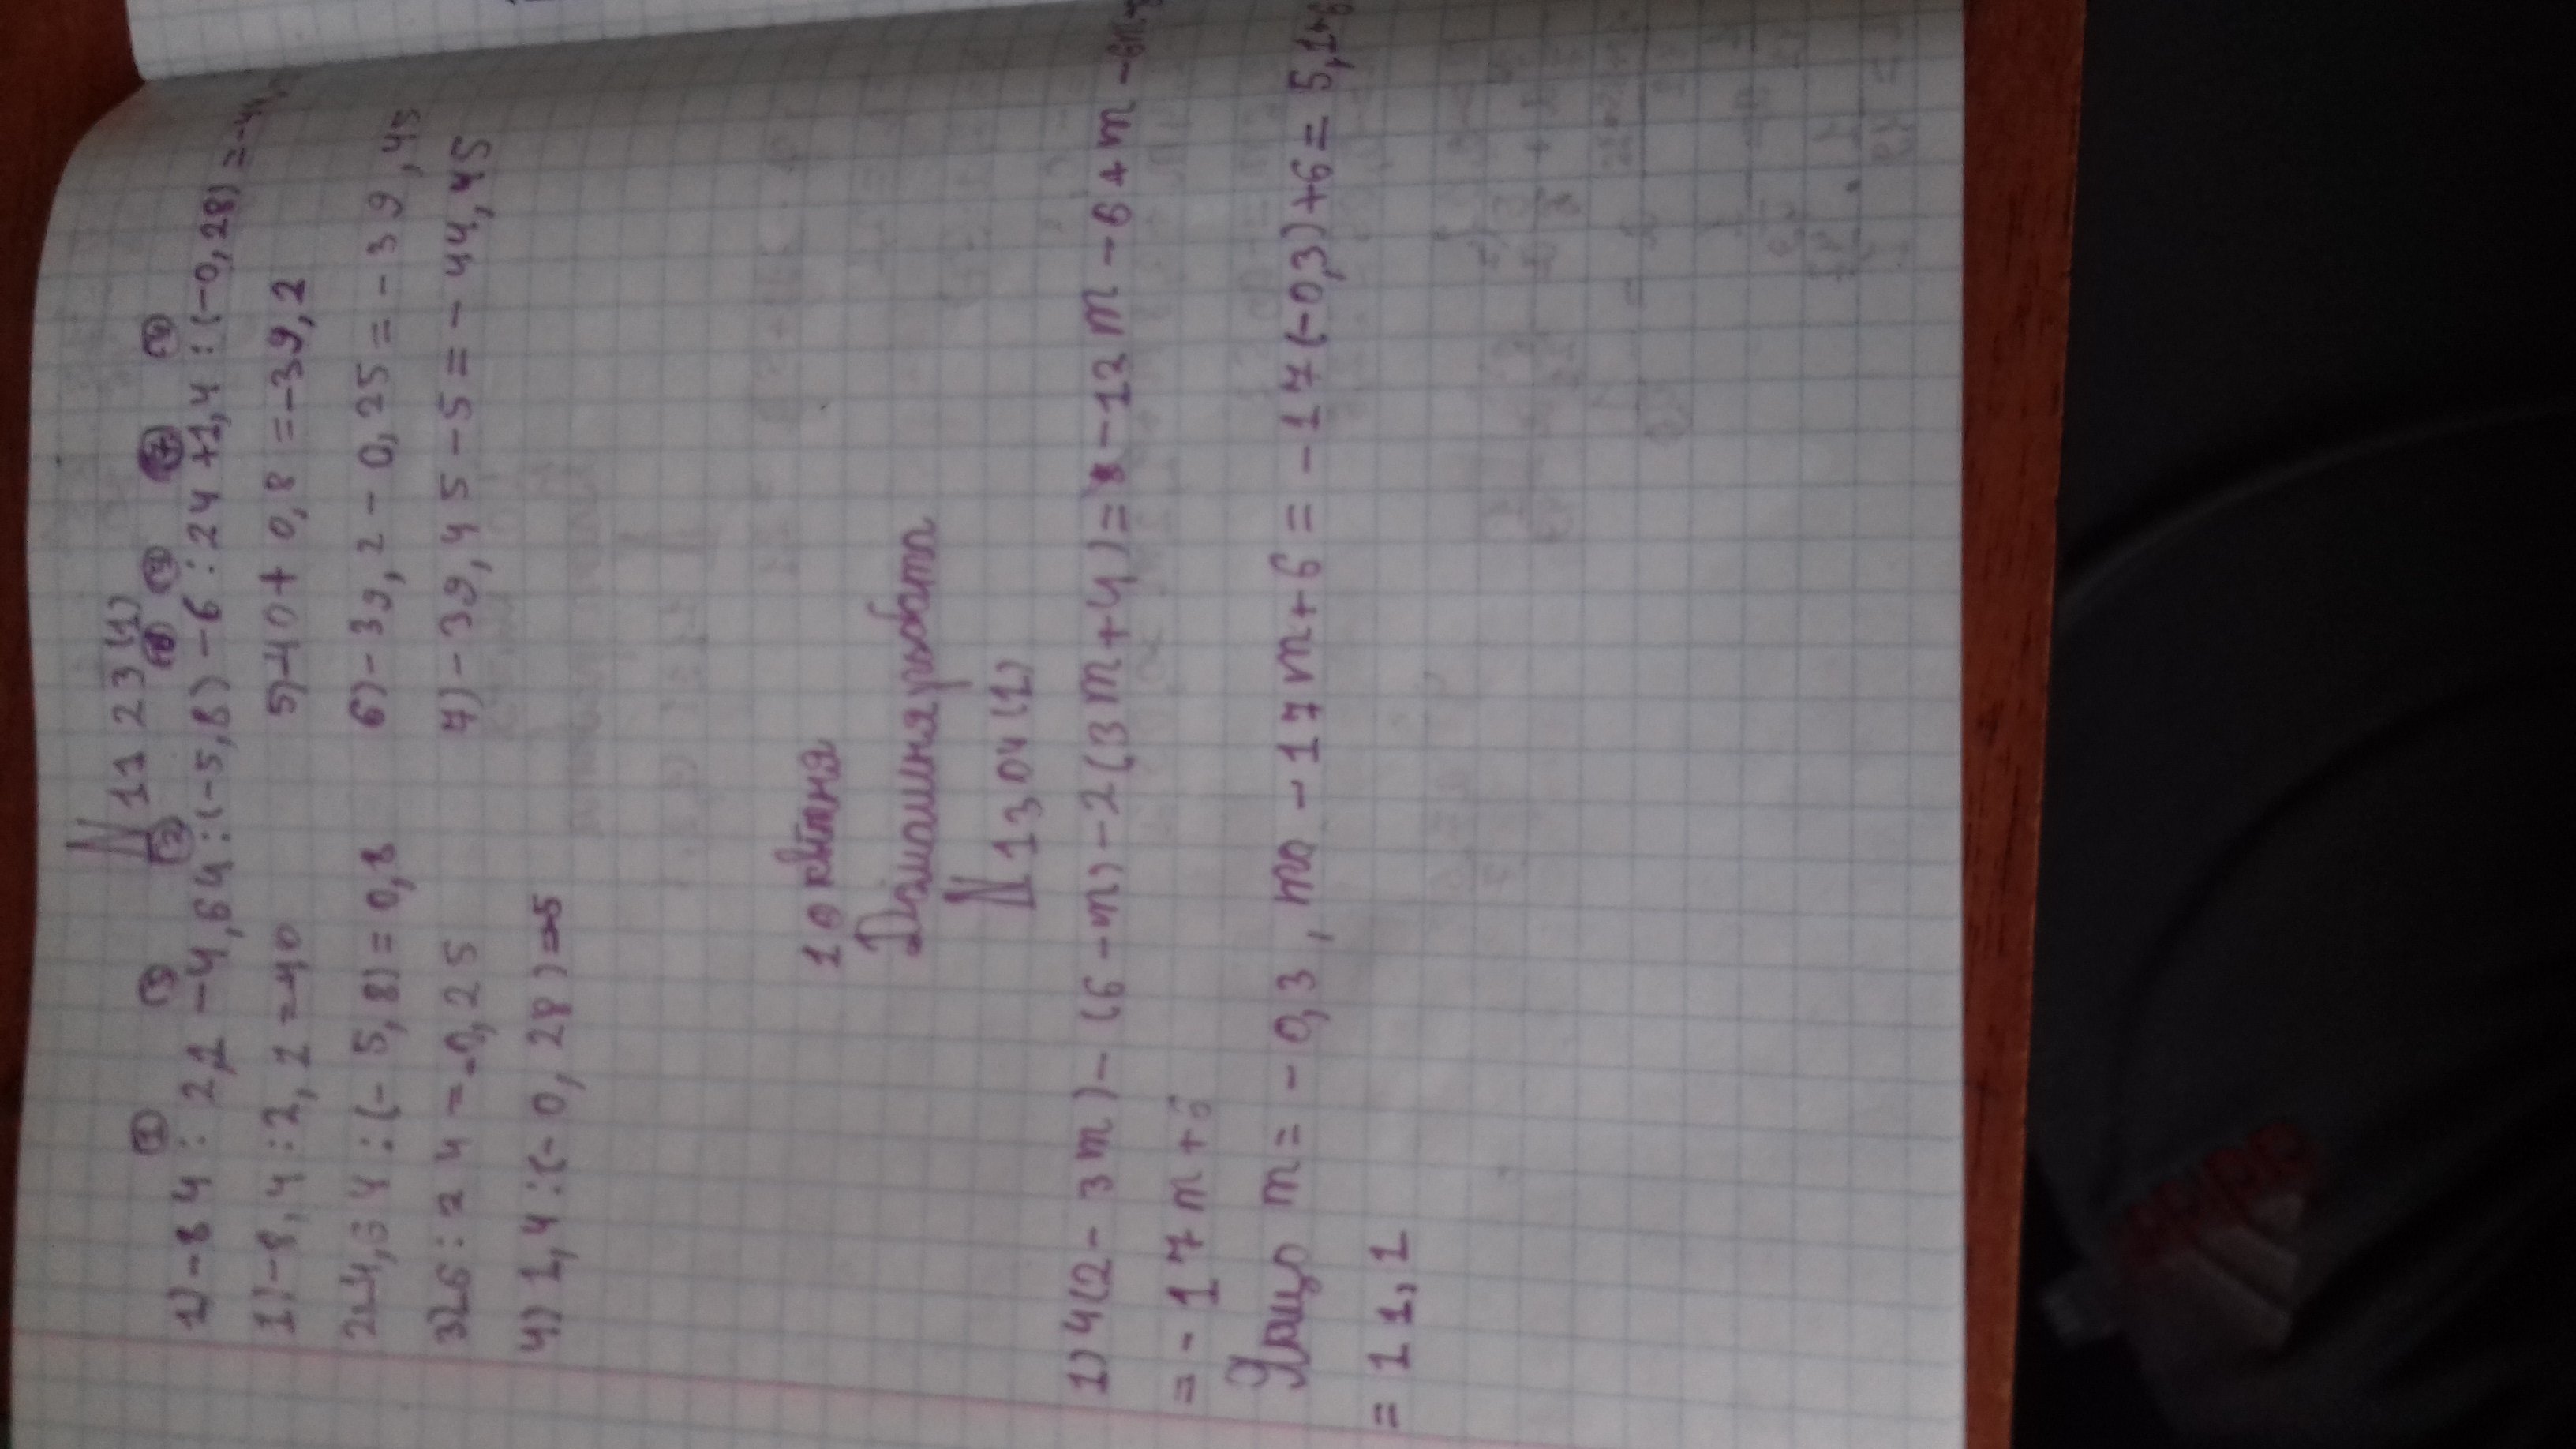 N 1123 (1)
1) -84 : 2,1 - 4,64 : (-5,8) - 6 : 24 + 1,4 : (-0,28) = -44,
1) -8,4 : 2,1 = -40
5) -40 + 0,8 = -39,2
: (-5,8) = 0,8
6) -39,2 - 0,25 = -39,45
3) -6 : 24 = -0,25
7) -39,45 - 5 = -44,45
4) 1,4 : (-0,28) = -5
10 квітня
Домашня робота
N 1304 (1)
1) 4(2 - 3m) - (6 - m) - 2(3m + 4) = 8 - 12m - 6 + m - 6m
= -17m + 6
Якщо m = -0,3, то -17m + 6 = -17(-0,3) + 6 = 5,1+6
= 11,1